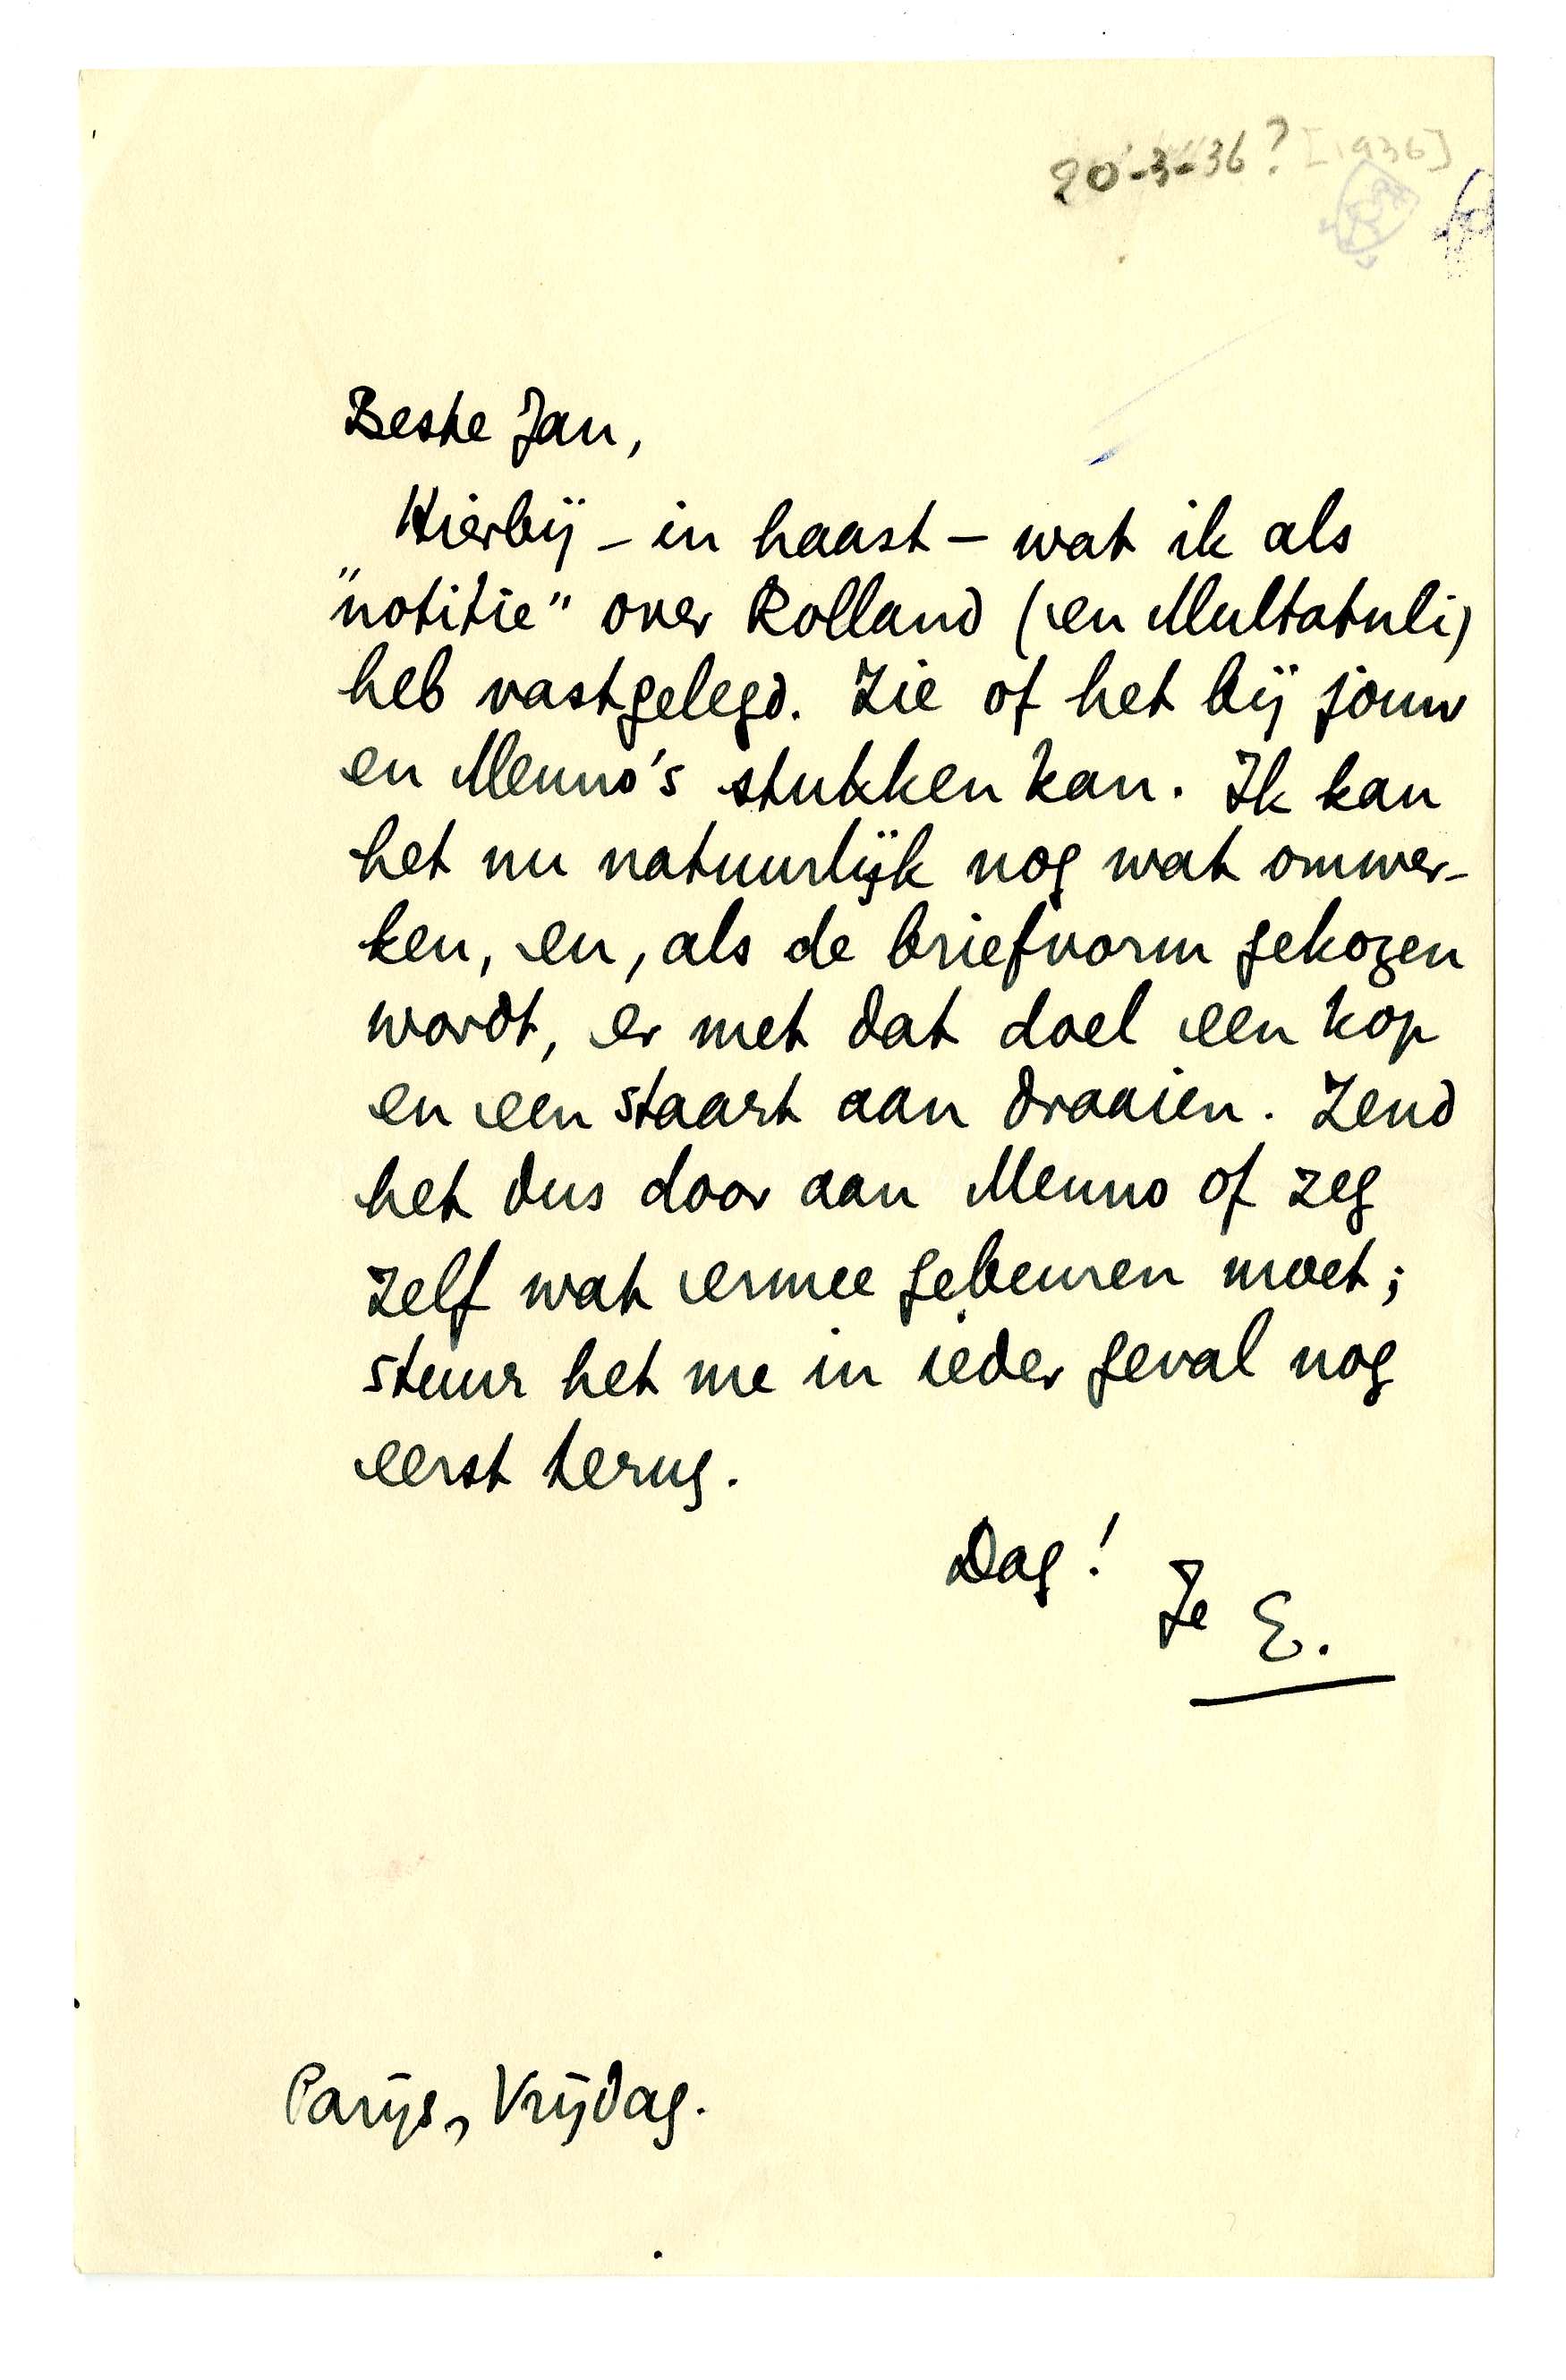 20-3-36? [1936]
Beste Jan,
Hierbij – in haast – wat ik als
"notitie" over Rolland (en Multatuli)
heb vastgelegd. Zie of het bij jouw
en Menno's stukken kan. Ik kan
het nu natuurlijk nog wat omwer-
ken, en, als de briefvorm gekozen
wordt, er met dat doel een kop
en een staart aan draaien. Zend
het dus door aan Menno of zeg
zelf wat ermee gebeuren moet;
stuur het me in ieder geval nog
eerst terug.
Dag!
Je E.
Parijs, Vrijdag.